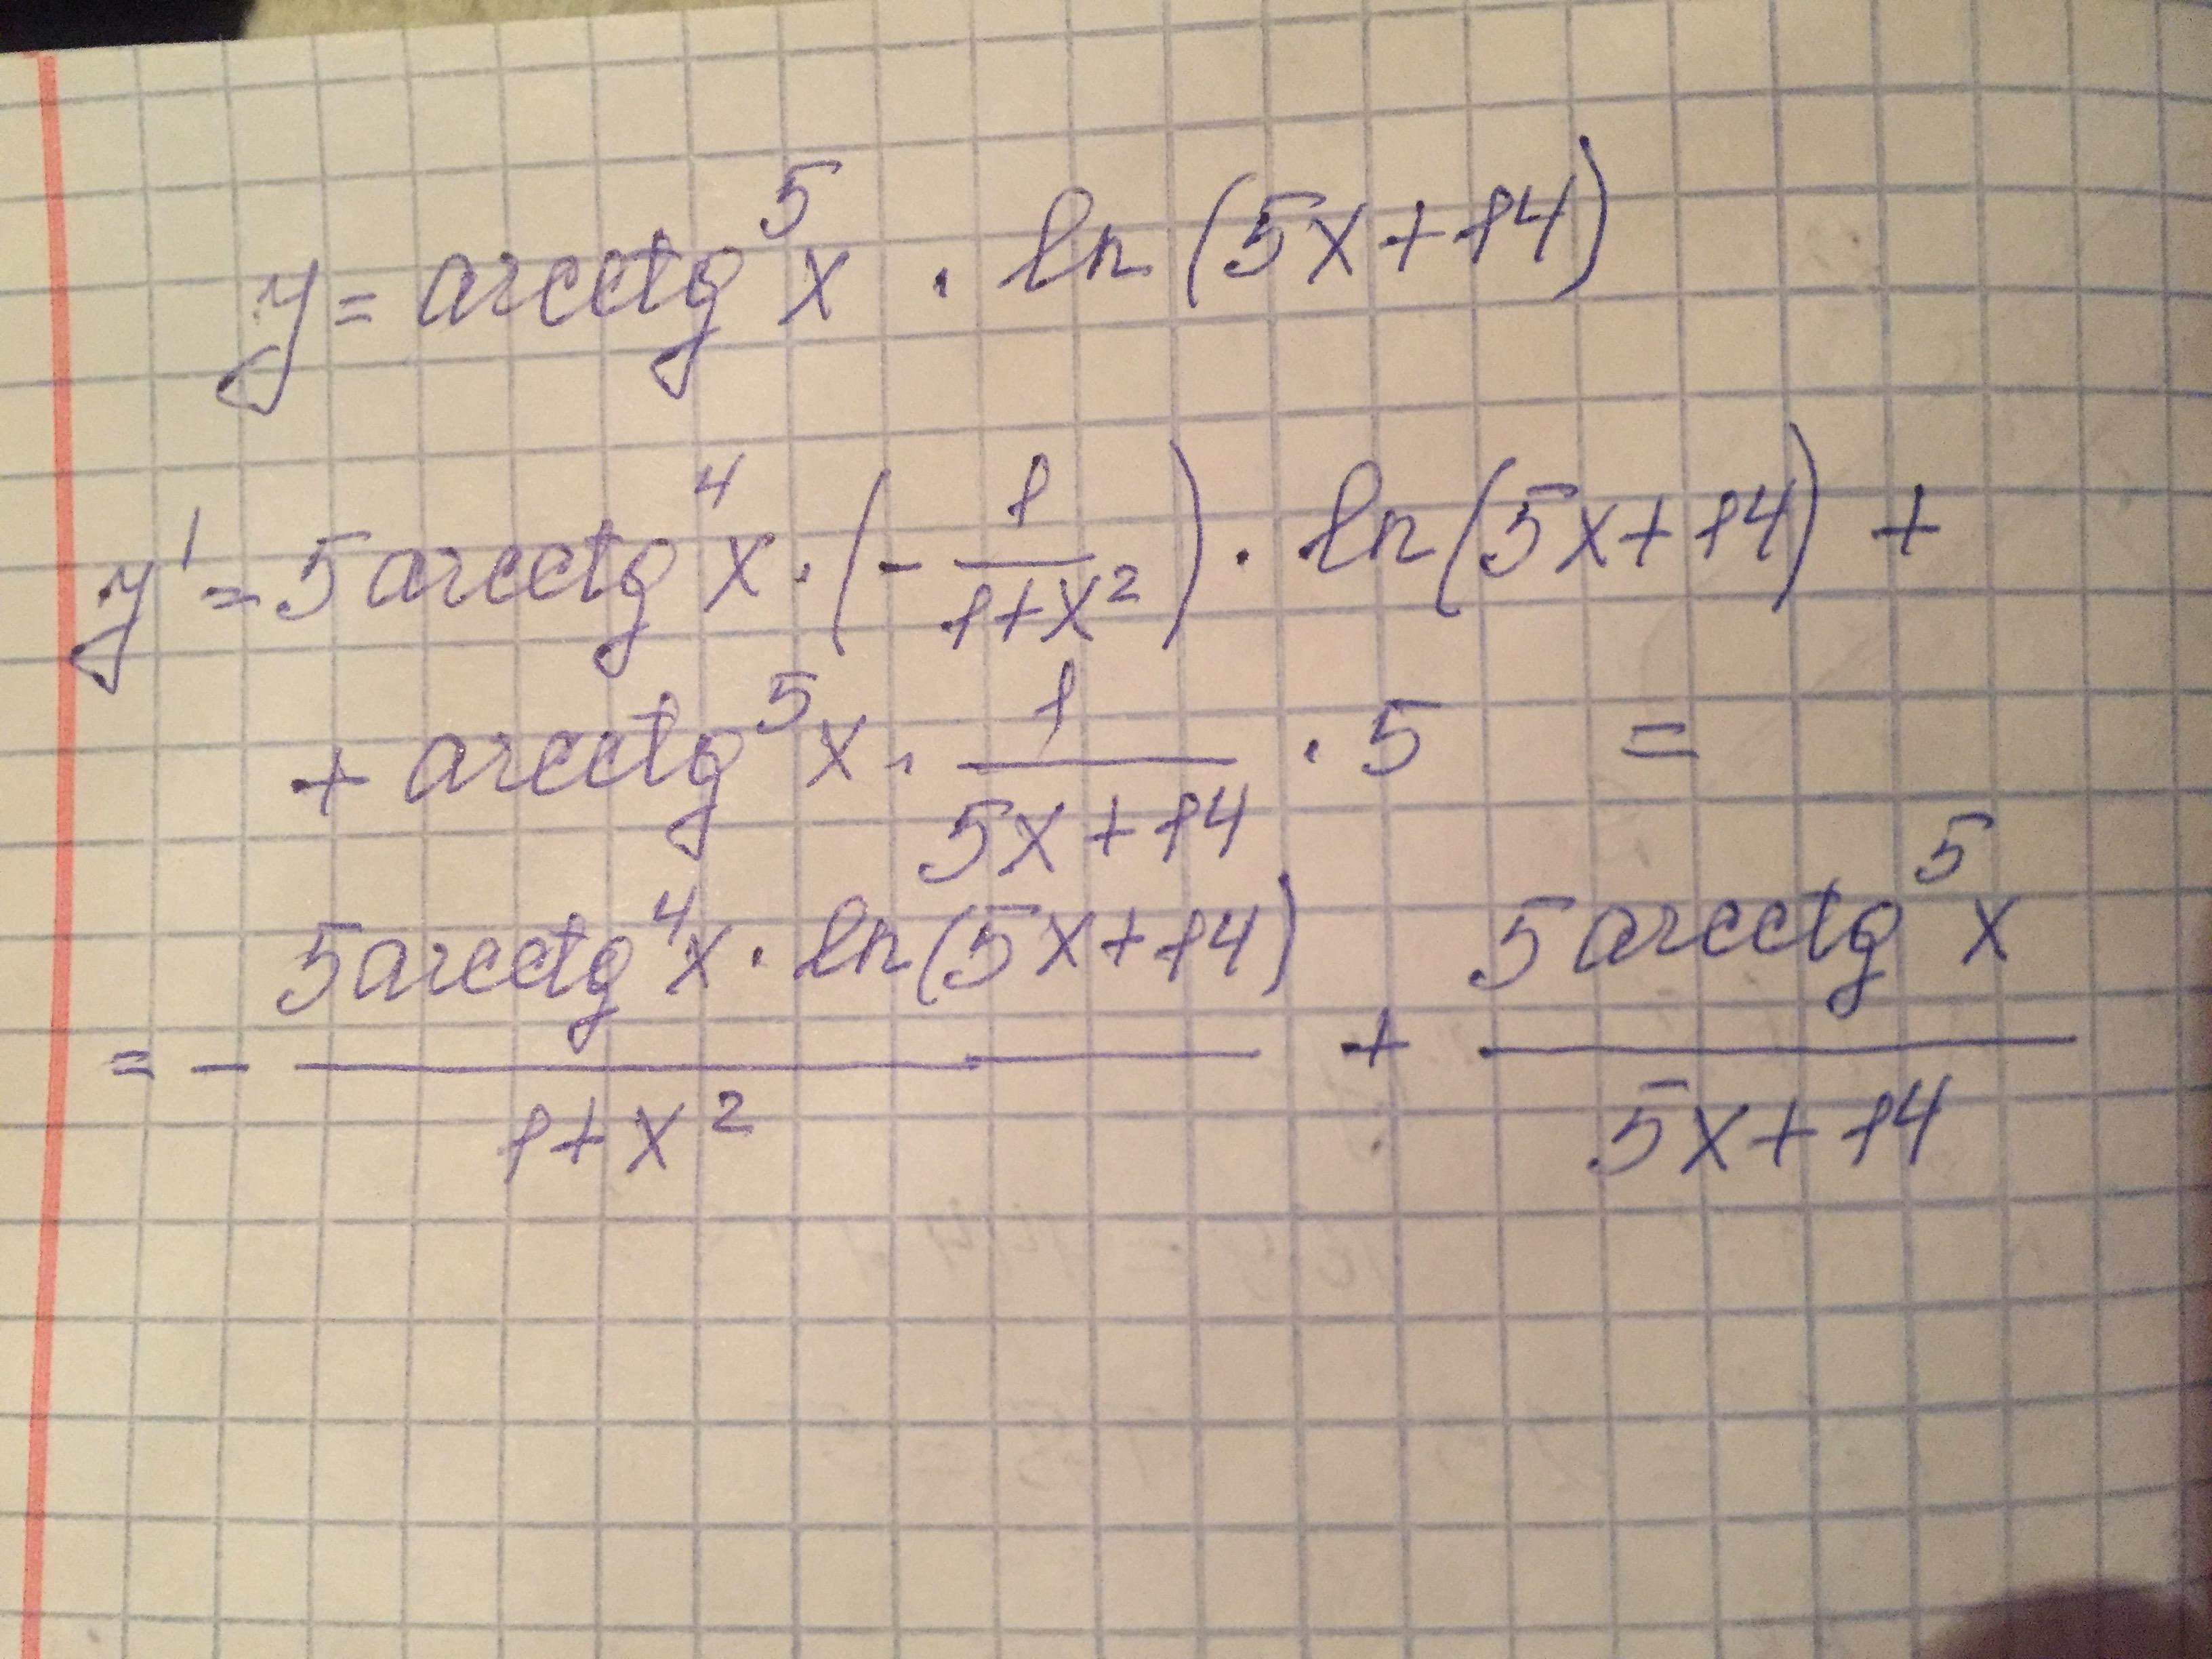 y = arcctg⁵x · ln(5x+14)
y' = 5 arcctg⁴x · (- 1/(1+x²)) · ln(5x+14) +
+ arcctg⁵x · 1/(5x+14) · 5 =
= - (5 arcctg⁴x · ln(5x+14))/(1+x²) + (5 arcctg⁵x)/(5x+14)